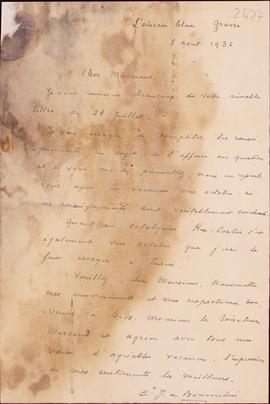 L'oiseau bleu Grasse
2427
5 aout 1936
Cher Monsieur,
Je vous remercie beaucoup de votre aimable
lettre du 28 Juillet.
Je vais essayer de compléter les rensei-
gnements au sujet de l'affaire en question
et si vous me le permettez, nous en reparle-
rons après les vacances vers octobre, si
ces renseignements sont véritablement
Quant au catalyseur
également vers octobre que j'irai le
faire essayer à
Veuillez, cher Monsieur, transmettre
mes remerciements et mes respectueux sou-
venirs à S. M. Monsieur le Sénateur
Marconi et agréer avec tous mes
voeux d'agréables vacances, l'expression
de mes sentiments les meilleurs.